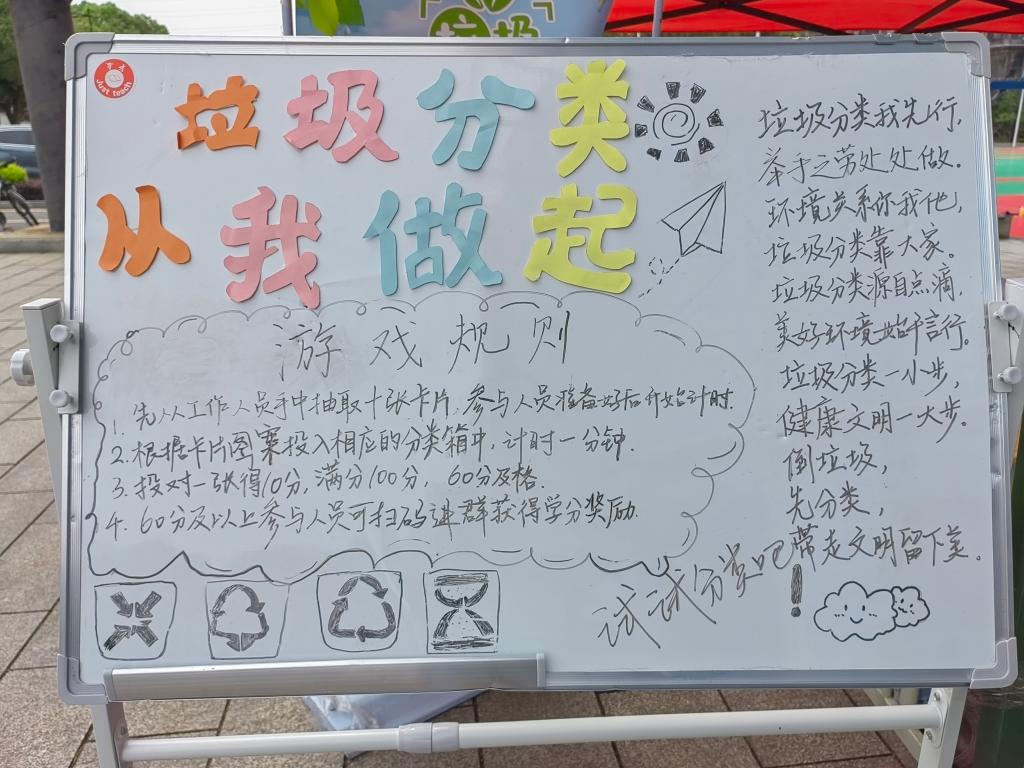 垃圾
Just teach
垃圾分类
从我做起
游戏规则
1. 先从工作人员手中抽取十张卡片, 参与人员准备好后开始计时.
2. 根据卡片图案投入相应的分类箱中, 计时一分钟.
3. 投对一张得10分, 满分100分, 60分及格.
4. 60分及以上参与人员可扫码进群获得学分奖励.
垃圾分类我先行,
举手之劳处处做.
环境关系你我他,
垃圾分类靠大家.
垃圾分类源自点滴,
美好环境始于言行.
垃圾分类一小步,
健康文明一大步.
倒垃圾,
先分类,
带走文明留下美.
试试分类吧!